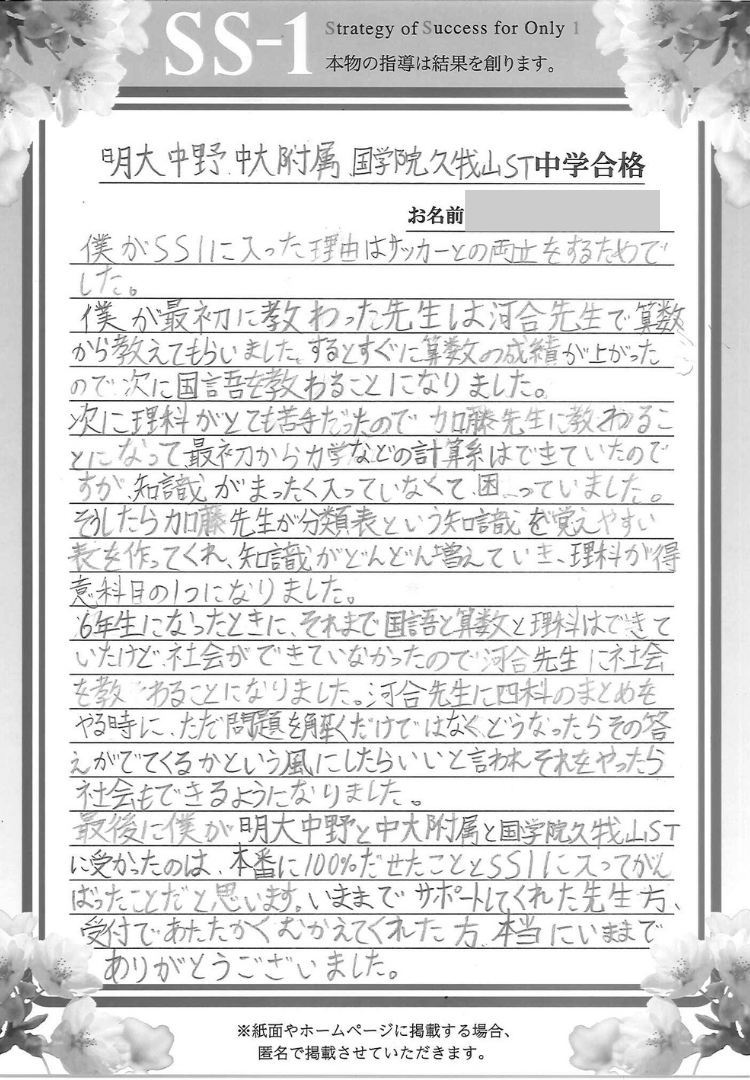 SS-1
Strategy of Success for Only 1
本物の指導は結果を創ります。
明大中野、中大附属、国学院久我山ST中学合格
お名前
僕がSS1に入った理由はサッカーとの両立をするためで
した。
僕が最初に教わった先生は河合先生で算数
から教えてもらいました。するとすぐに算数の成績が上がった
ので次に国語を教わることになりました。
次に理科がとても苦手だったので加藤先生に教わるこ
とになって最初から力学などの計算系はできていたので
すが、知識がまったく入っていなくて、困っていました。
そうしたら加藤先生が分類表という知識を覚えやすい
表を作ってくれ、知識がどんどん増えていき、理科が得
意科目の1つになりました。
6年生になったときに、それまで国語と算数と理科はできて
いたけど、社会ができていなかったので河合先生に社会
を教わることになりました。河合先生に四科のまとめを
やる時に、ただ問題を解くだけではなく、どうなったらその答
えがでてくるかという風にしたらいいと言われそれをやったら
社会もできるようになりました。
最後に僕が明大中野と中大附属と国学院久我山ST
に受かったのは、本番に100%だせたこととSS1に入ってがん
ばったことだと思います。いままでサポートしてくれた先生方、
受付であたたかくむかえてくれた方、本当にいままで
ありがとうございました。
※紙面やホームページに掲載する場合、
匿名で掲載させていただきます。